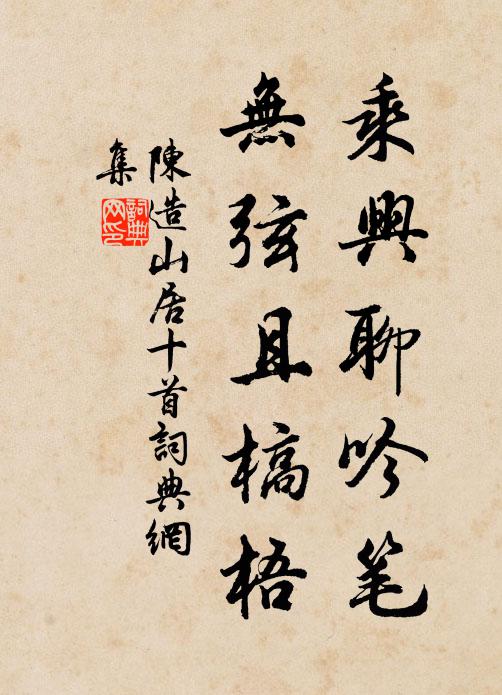 乘興聊吟笔
無弦且槁梧
陳造山居十首詞典網
集
詞典網印